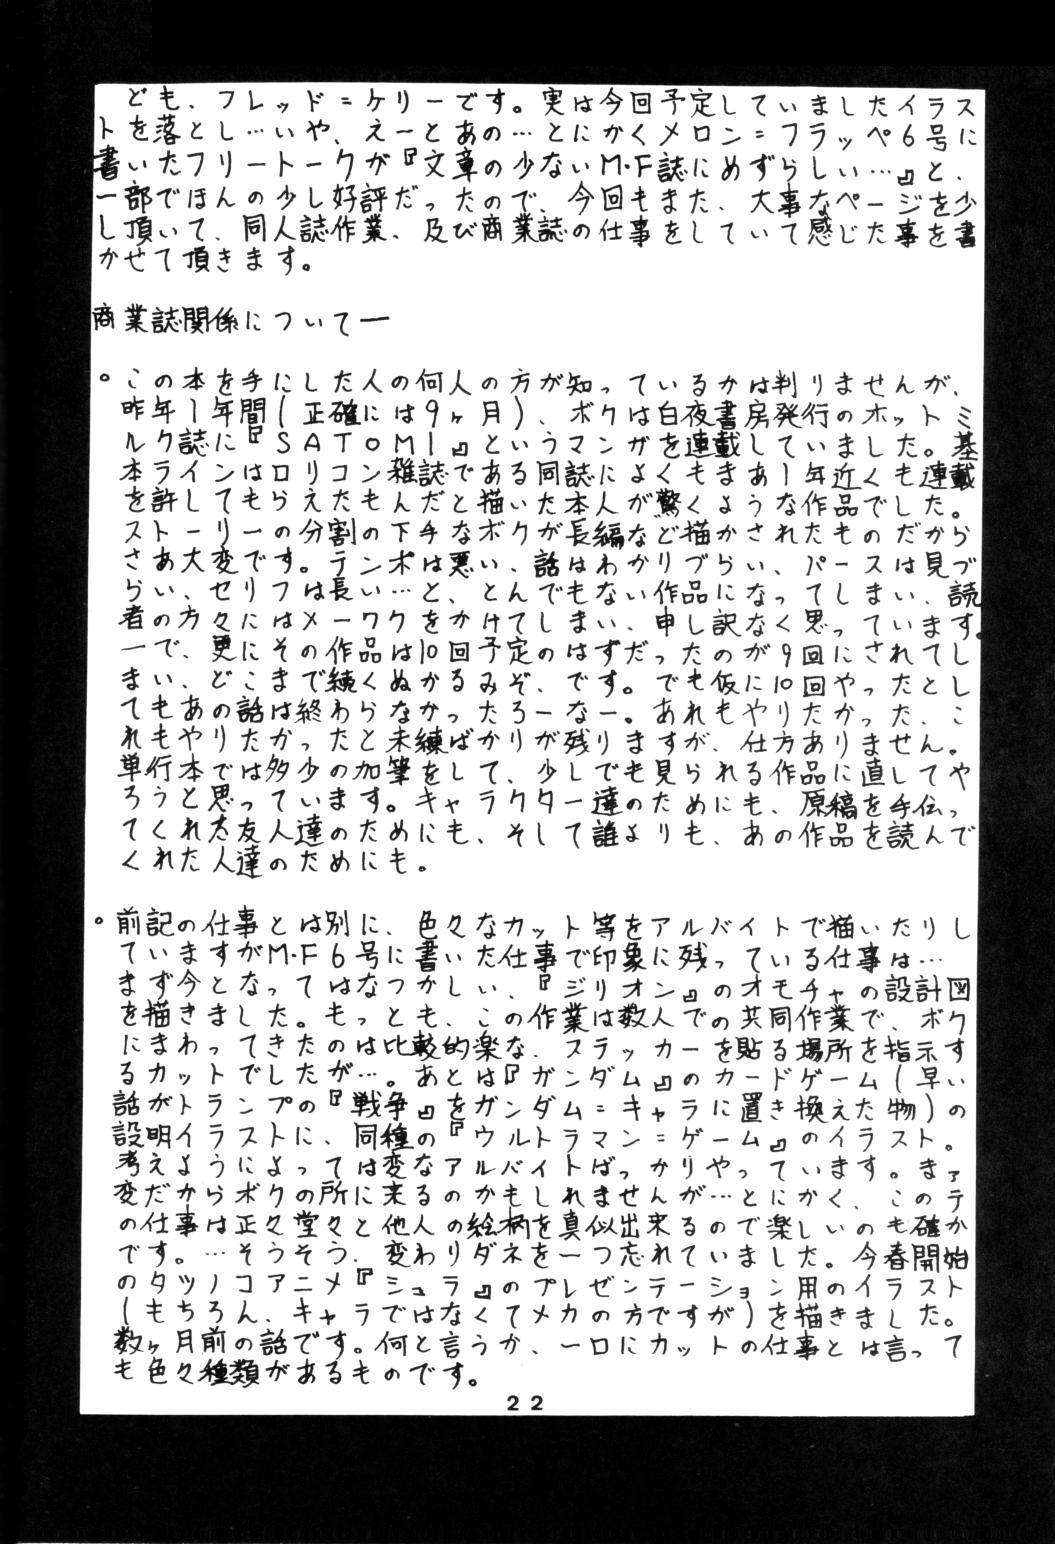 ども、フレッド=ケリーです。実は今回予定していましたイラス
トを落とし…いや、えーとあの…とにかくメロン=フラッペ6号に
書いたフリートークが『文章の少ないM・F誌にめずらしい…』と、
一部でほんの少し好評だったので、今回もまた、大事なページを少
し頂いて、同人誌作業、及び商業誌の仕事をしていて感じた事を書
かせて頂きます。
商業誌関係について―
。この本を手にした人の何人の方が知っているかは判りませんが、
昨年1年間(正確には9ヶ月)、ボクは白夜書房発行のホットミ
ルク誌に『SATOMI』というマンガを連載していました。基
本ラインはロリコン雑誌である同誌によくもまあ1年近くも連載
を許してもらえたもんだと描いた本人が驚くような作品でした。
ストーリーの分割も下手なボクが長編など描かされたものだから
さあ大変です。テンポは悪い、話はわかりづらい、パースは見づ
らい、セリフは長い…と、とんでもない作品になってしまい、読
者の方々にはメーワクをかけてしまい、申し訳なく思っています。
一で、更にその作品は10回予定のはずだったのが9回にされてし
まい、どこまで続くぬかるみぞ、です。でも仮に10回やったとし
てもあの話は終わらなかったろーなー。あれもやりたかった、こ
れもやりたかったと未練ばかりが残りますが、仕方ありません。
単行本では多少の加筆をして、少しでも見られる作品に直してや
ろうと思っています。キャラクター達のためにも、原稿を手伝っ
てくれた友人達のためにも、そして誰よりも、あの作品を読んで
くれた人達のためにも。
。前記の仕事とは別に、色々なカット等をアルバイトで描いたりし
ていますがM・F6号にに書いた仕事で印象に残っている仕事は…
まず今となってはなつかしい、『ジリオン』のオモチャの設計図
を描きました。もっとも、この作業は数人での共同作業で、ボク
にまわってきたのは比較的楽な、スラッカーを貼る場所を指示す
るカットでしたが…。あとは『ガンダム』のカードゲーム(早い
話がトランプの『戦争』をガンダム=キャラに置き換えた物)の
設明イラストに、同種の『ウルトラマン=ゲーム』のイラスト。
考えようによっては変なアルバイトばっかりやっています。まァ
変だからボクの所に来るのかもしれませんが…とにかく、このテ
の仕事は正々堂々と他人の絵柄を真似出来るので楽しいのも確か
です。…そうそう、変わりダネを一つ忘れていました。今春開始
のタツノコアニメ『シュラ』のプレゼンテーション用のイラスト
(もちろん、キャラではなくてメカの方ですが)を描きました。
数ヶ月前の話です。何と言うか、一口にカットの仕事とは言って
も色々種類があるものです。
22